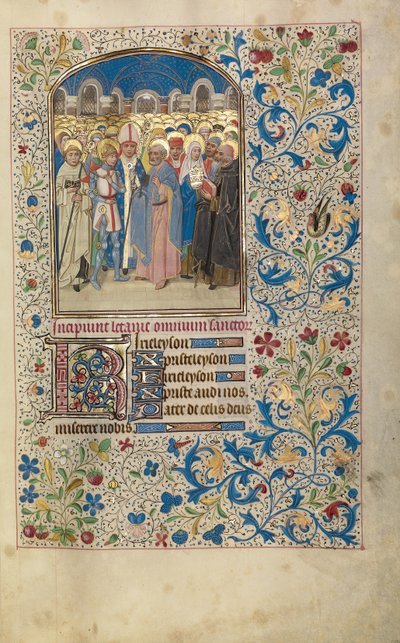 Incipiunt letanie omnium sanctor
Kirieleyson
Xpisteleyson
Kirieleyson
Xpriste audi nos
Pater de celis deus
miserere nobis